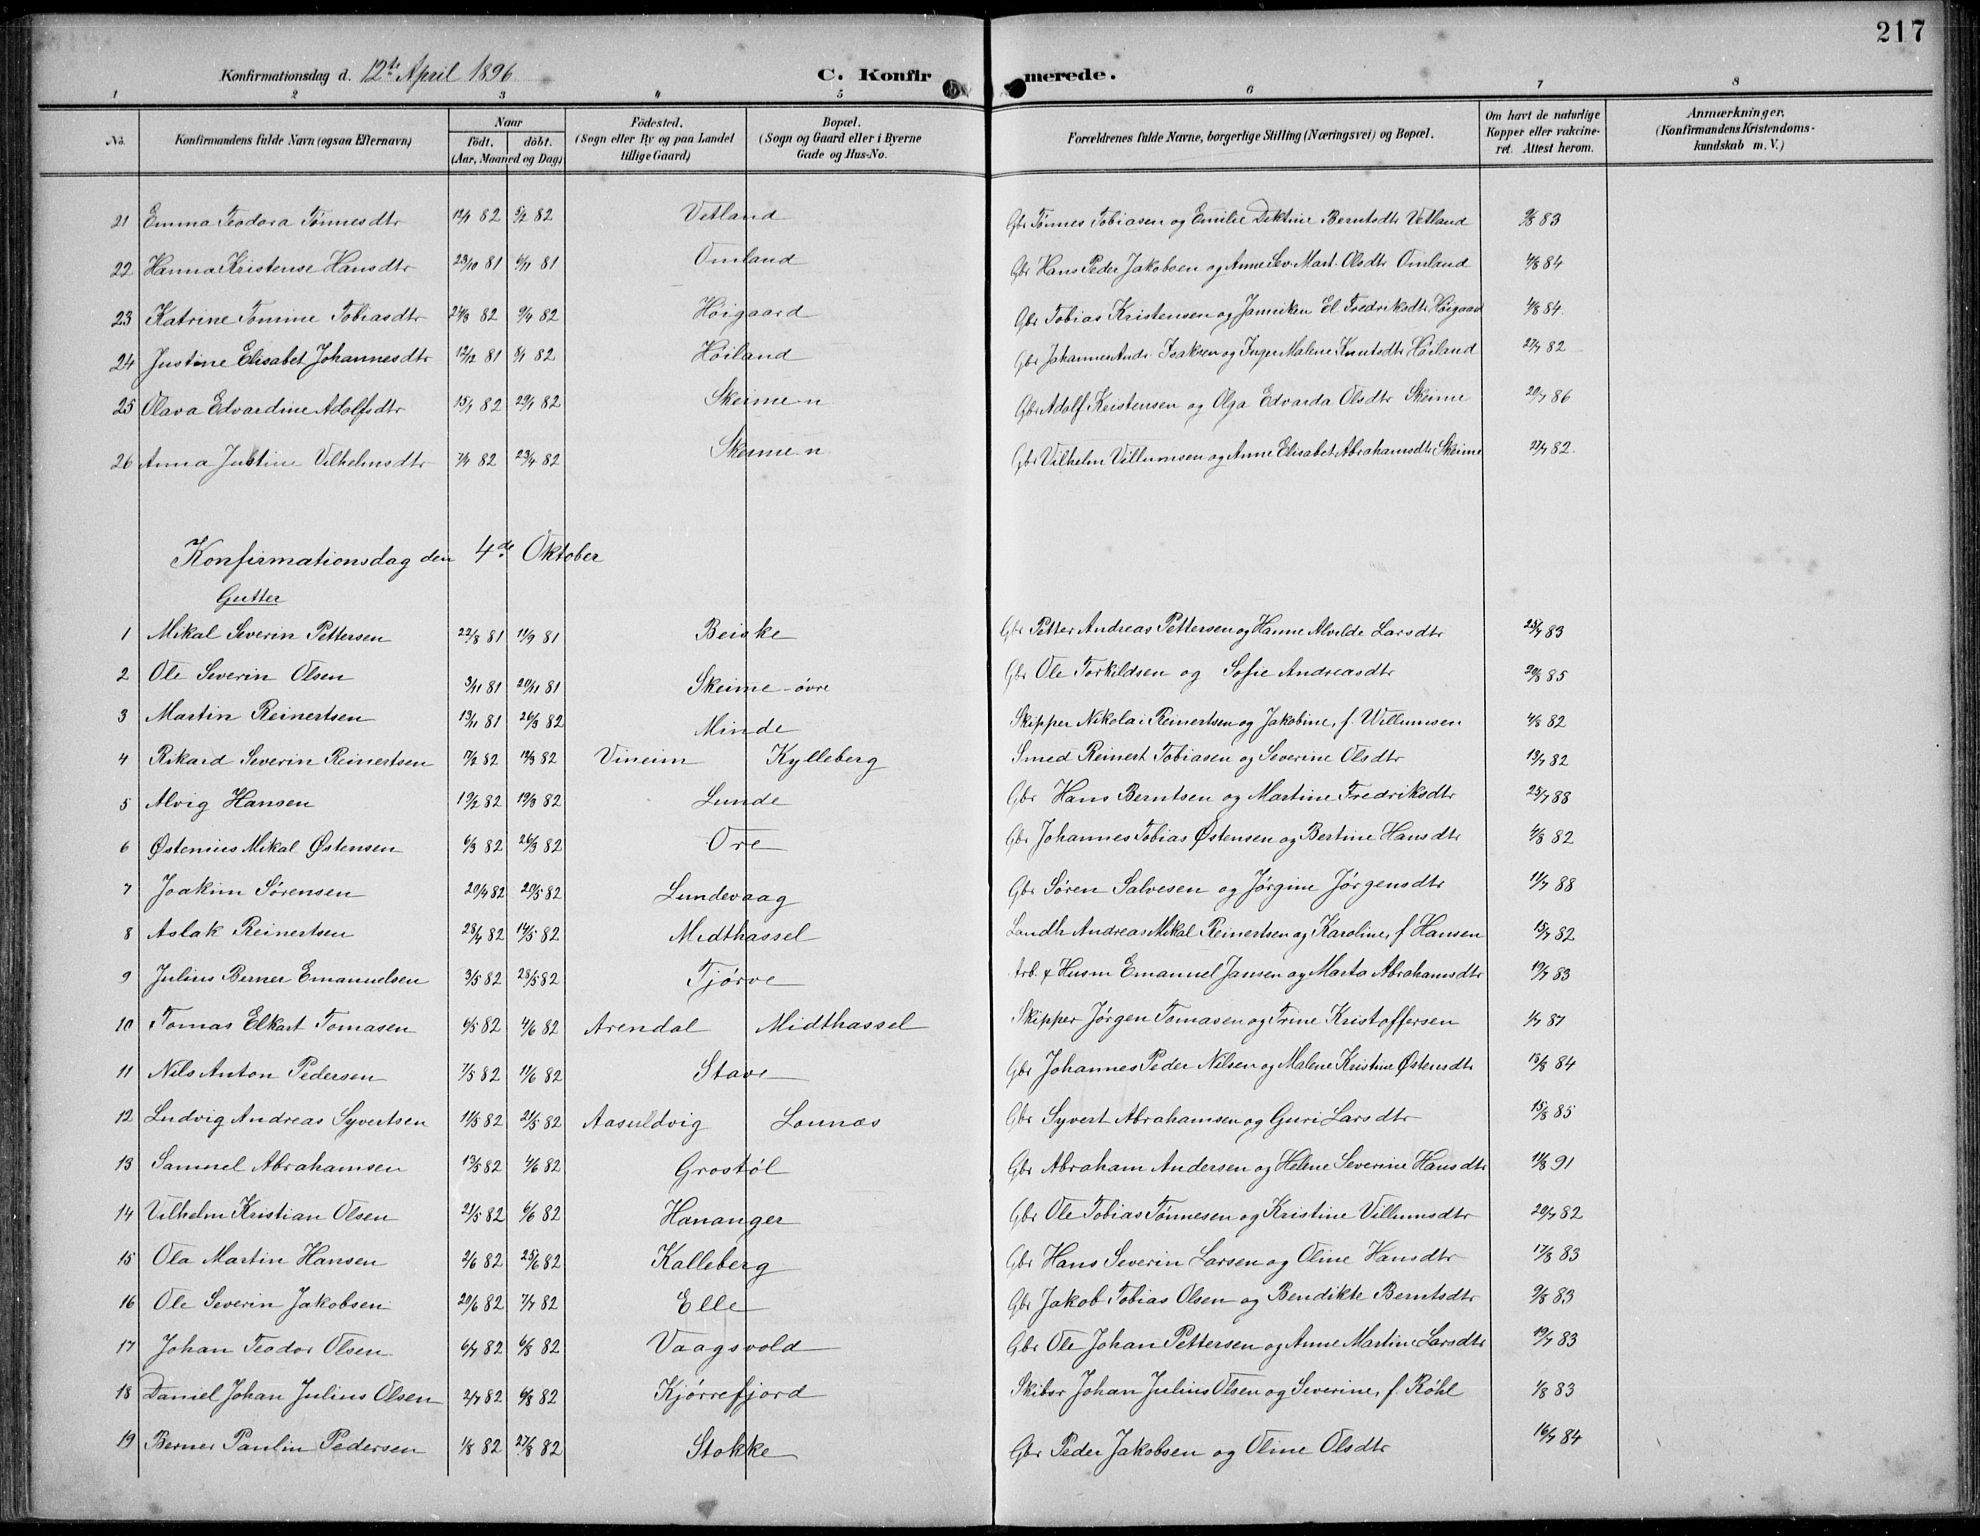 217
Konfirmationsdag d. 12te April 1896 C. Konfirmerede.
1 2 3 4 5 6 7 8
No. Konfirmandens fulde Navn (ogsaa Efternavn) Naar födt. döbt. (Aar, Maaned og Dag) Födested. (Sogn eller By og paa Landet tillige Gaard) Bopæl. (Sogn og Gaard eller i Byerne Gade og Hus-No. Forældrenes fulde Navne, borgerlige Stilling (Næringsvei) og Bopæl. Om havt de naturlige Kopper eller vakcineret. Attest herom. Anmærkninger. (Konfirmandens Kristendomskundskab m. V.)
21 Emma Teodora Tønnesdtr 12/1 82 5/2 82 Vetland Gbr Tønnes Tobiasen og Emilie Diktine Berntsdtr Vetland 9/8 83
22 Hanna Kristense Hansdtr 23/10 81 6/11 81 Omland Gbr Hans Peder Jakobsen og Anne Sev. Mart. Olsdtr Omland 4/8 84
23 Katrine Tomine Tobiasdtr 24/3 82 9/4 82 Høigaard Gbr Tobias Kristensen og Janniken El. Fredriksdtr Høigaard 4/8 84
24 Justine Elisabet Johannesdtr 12/12 81 8/1 82 Høiland Gbr Johannes Andr. Isaksen og Inger Malene Knutsdtr Høiland 27/7 82
25 Olava Edvardine Adolfsdtr 15/1 82 29/1 82 Skeime n Gbr Adolf Kristensen og Olga Edvarda Olsdtr Skeime 20/7 86
26 Anna Justine Vilhelmsdtr 7/4 82 23/4 82 Skeime n Gbr Vilhelm Villumsen og Anne Elisabet Abrahamsdtr Skeime 27/7 82
Konfirmationsdag den 4de Oktober
Gutter
1 Mikal Severin Pettersen 22/8 81 11/9 81 Beiske Gbr Petter Andreas Pettersen og Hanne Alvilde Larsdtr 25/7 83
2 Ole Severin Olsen 3/11 81 20/11 81 Skeime-øvre Gbr Ole Torkildsen og Sofie Andreasdtr 20/8 85
3 Martin Reinertsen 13/11 81 26/3 82 Minde Skipper Nikolai Reinertsen og Jakobine, f. Willumsen 4/8 82
4 Rikard Severin Reinertsen 17/2 82 12/3 82 Vineim Kylleberg Smed Reinert Tobiasen og Severine Olsdtr 13/7 82
5 Alvig Hansen 19/2 82 19/3 82 Lunde Gbr Hans Berntsen og Martine Fredriksdtr 25/7 88
6 Østenius Mikal Østensen 6/3 82 26/3 82 Ore Gbr Johannes Tobias Østensen og Bertine Hansdtr 4/8 82
7 Joakim Sørensen 20/4 82 20/5 82 Lundevaag Gbr Søren Salvesen og Jørgine Jørgensdtr 11/7 88
8 Aslak Reinertsen 23/4 82 14/5 82 Midthassel Landh. Andreas Mikal Reinertsen og Karoline, f. Hansen 15/7 82
9 Julius Berner Emanuelsen 3/5 82 28/5 82 Tjørve Arb. & Husm Emanuel Jansen og Marta Abrahamsdtr 19/7 83
10 Tomas Elkart Tomasen 6/5 82 4/6 82 Arendal Midthassel Skipper Jørgen Tomasen og Trine Kristoffersen 1/7 87
11 Nils Anton Pedersen 7/5 82 11/6 82 Stave Gbr Johannes Peder Nilsen og Malene Kristine Østensdtr 15/8 84
12 Ludvig Andreas Syvertsen 11/5 82 21/5 82 Aasuldvig Lounæs Gbr Syvert Abrahamsen og Guri Larsdtr 15/8 85
13 Samuel Abrahamsen 13/5 82 4/6 82 Grostøl Gbr Abraham Andersen og Helene Severine Hansdtr 11/8 91
14 Vilhelm Kristian Olsen 21/5 82 6/6 82 Hananger Gbr Ole Tobias Tønnesen og Kristine Villumsdtr 20/7 82
15 Ola Martin Hansen 2/6 82 25/6 82 Kalleberg Gbr Hans Severin Larsen og Oline Hansdtr 17/8 83
16 Ole Severin Jakobsen 20/6 82 7/7 82 Elle Gbr Jakob Tobias Olsen og Bendikte Berntsdtr 9/8 83
17 Johan Teodor Olsen 6/7 82 6/8 82 Vaagsvold Gbr Ole Johan Pettersen og Anne Martine Larsdtr 19/7 83
18 Daniel Johan Julius Olsen 2/7 82 6/8 82 Kjørrefjord Skibsr Johan Julius Olsen og Severine, f. Røhl 1/8 83
19 Berner Paulin Pedersen 1/8 82 27/8 82 Stokke Gbr Peder Jakobsen og Oline Olsdtr 16/7 84